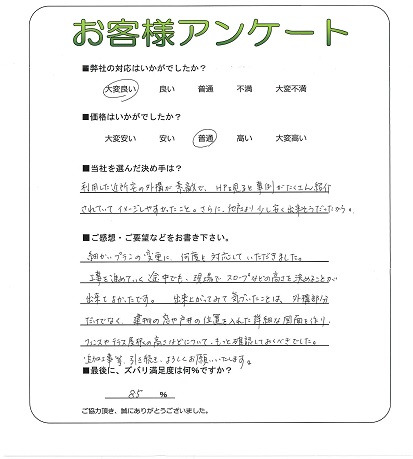 お客様アンケート
■弊社の対応はいかがでしたか？
大変良い 良い 普通 不満 大変不満
■価格はいかがでしたか？
大変安い 安い 普通 高い 大変高い
■当社を選んだ決め手は？
利用した近所宅の外構が素敵で、HPを見ると事例がたくさん紹介
されていてイメージしやすかったこと。さらに、他店より少し安く出来そうだったから。
■ご感想・ご要望などをお書き下さい。
細かいプランの変更に、何度も対応していただきました。
工事を進めていく途中でも、現場でスロープなどの高さを決めることが
出来てよかったです。 出来上がってみて気づいたことは、外構部分
だけでなく、建物の窓や戸井の位置を入れた詳細な図面を作り、
フェンスやテラス屋根の高さなどについて、もっと確認しておくべきでした。
追加工事等、引き続き、よろしくお願いいたします。
■最後に、ズバリ満足度は何％ですか？
85 ％
ご協力頂き、誠にありがとうございました。